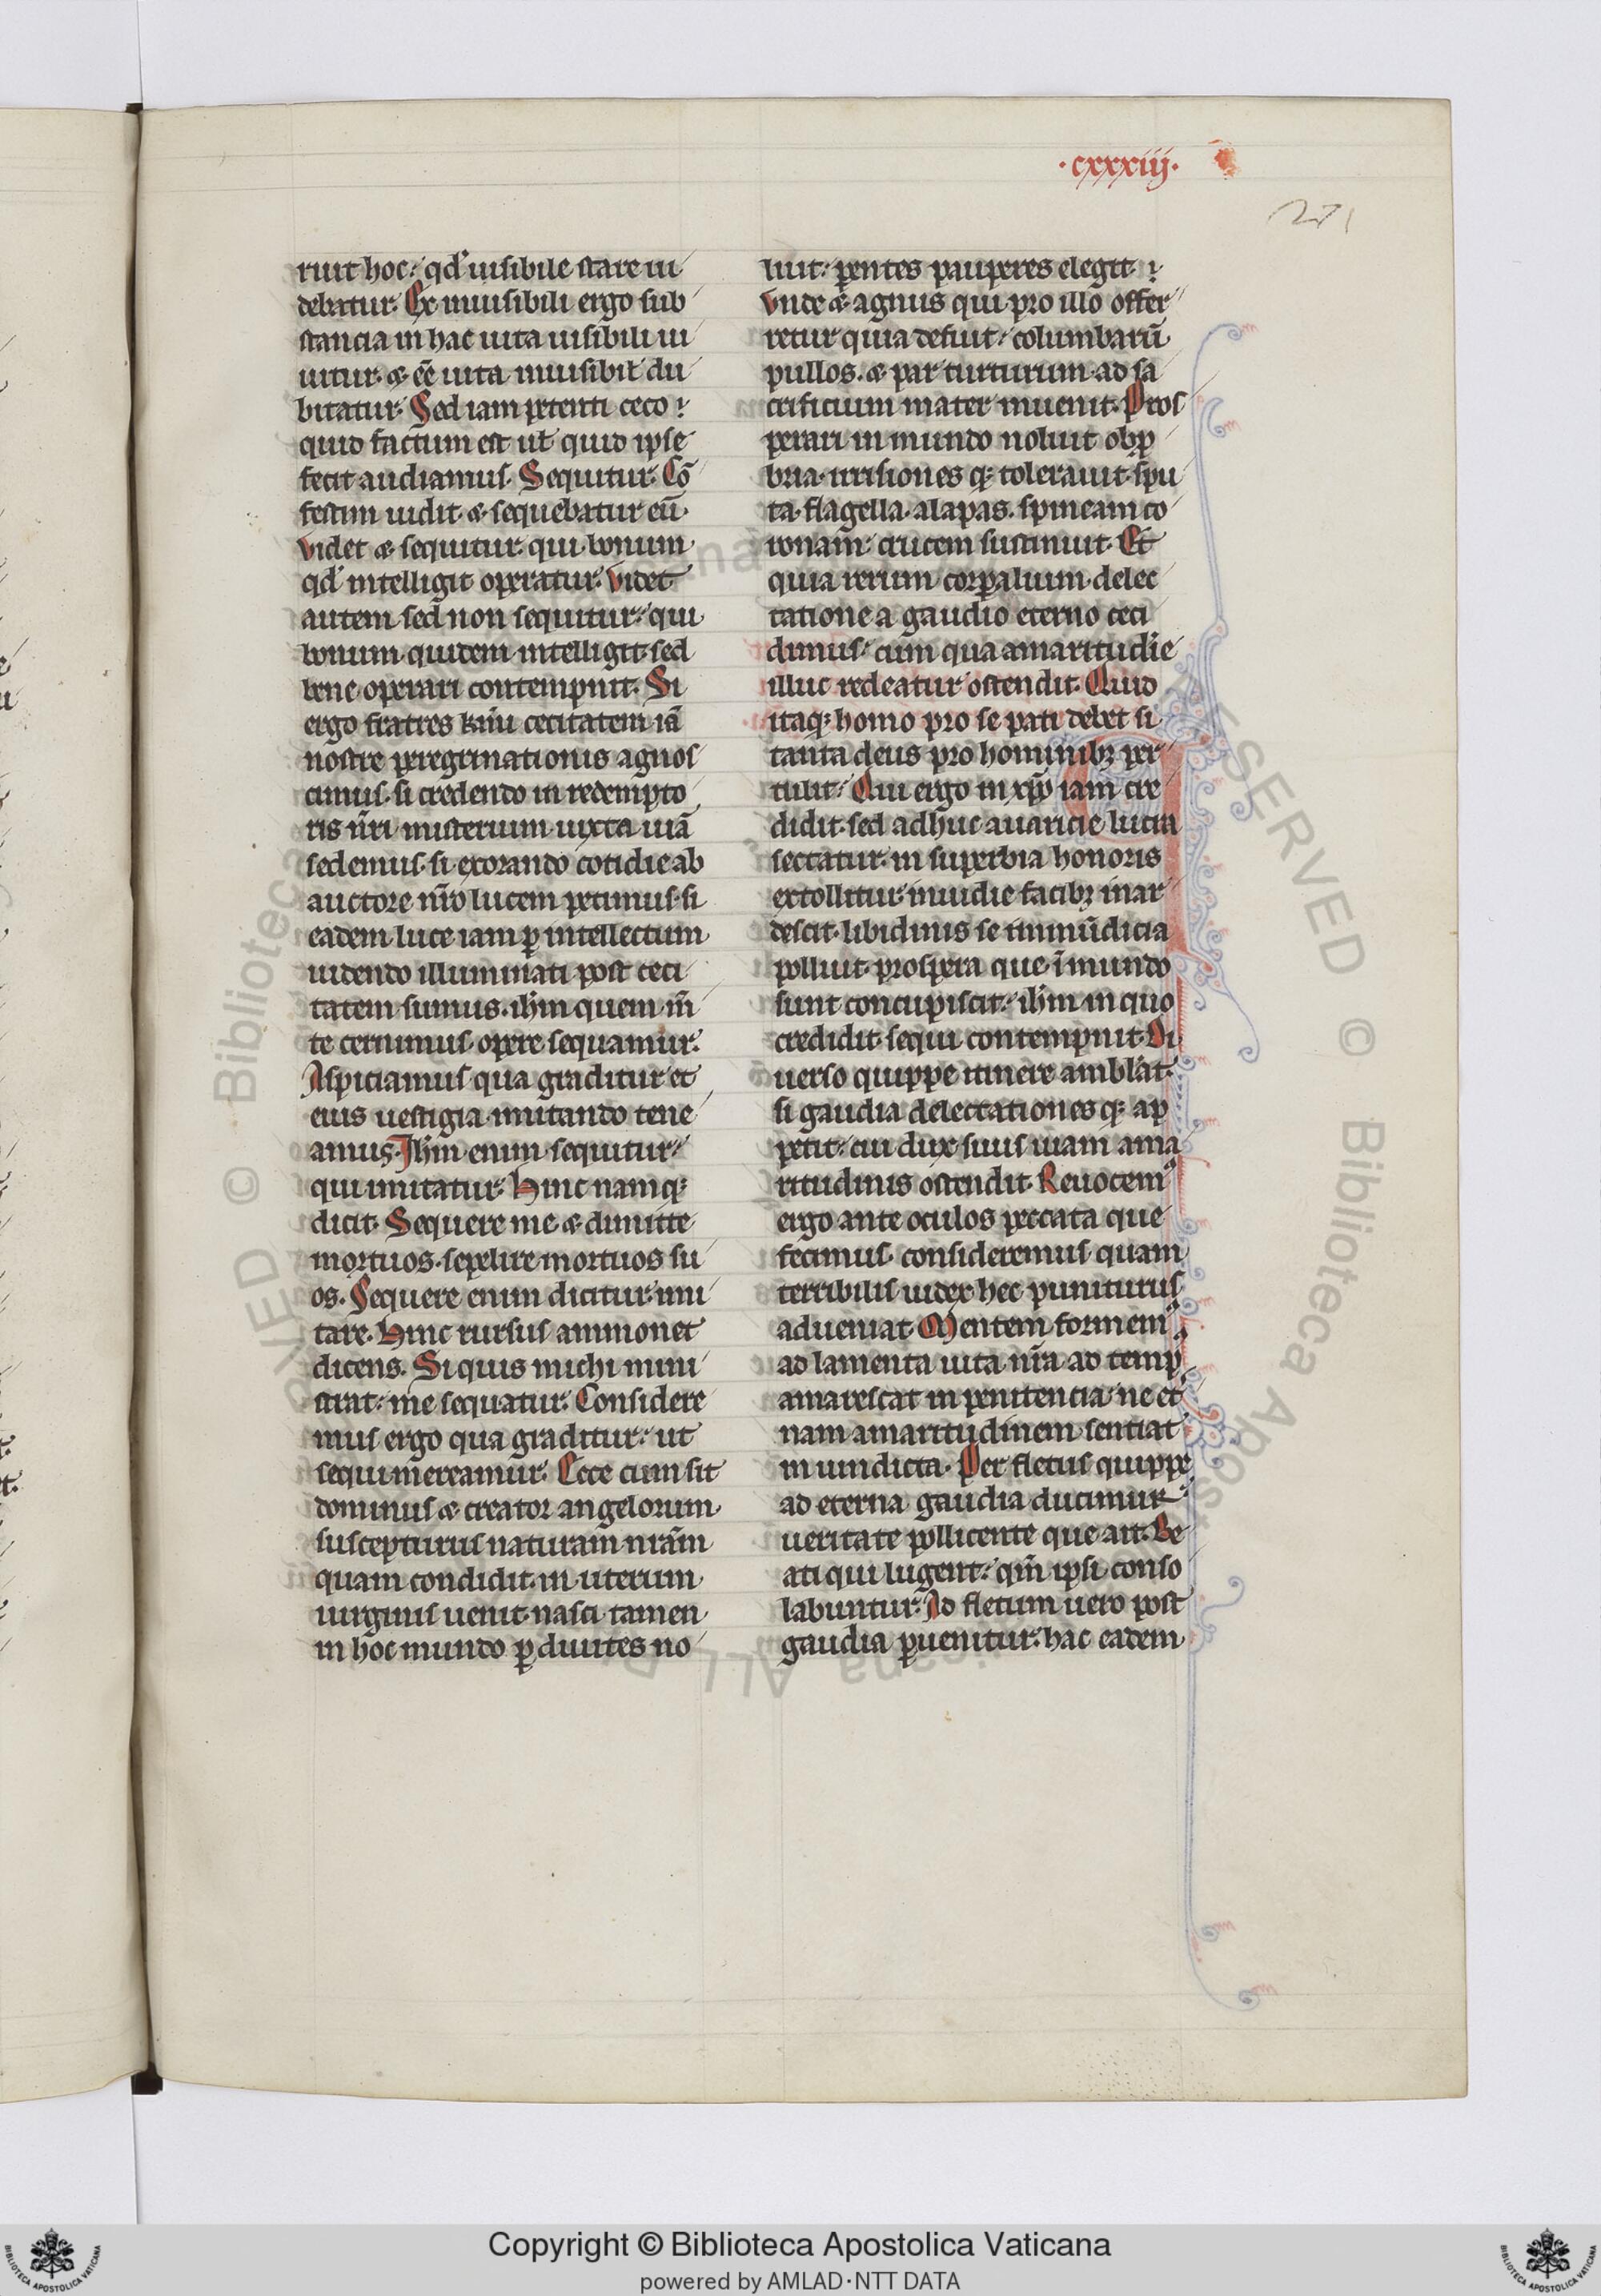 ·cxxxiij·
271
ruit hoc qđ uisibile stare ui
debatur. Ex inuisibili ergo sub
stancia in hac uita uisibili ui
uitur. & eē uita inuisibil' du
bitatur. Sed iam petenti ceco
quid factum est ut quid ipse
fecit audiamus. Sequitur. Cō
festim uidit & sequebatur eū.
Videt & sequitur. qui bonum
qđ intelligit operatur. Videt
autem sed non sequitur. qui
bonum quidem intelligit. sed
bene operari contempnit. Si
ergo fratres kmi cecitatem iā
nostre peregrinationis agnos
cimus. si credendo in redempto
ris nr̄i misterium iuxta uiā
sedemus. si exorando cotidie ab
auctore nr̄o lucem petimus. si
eadem luce iam ꝑ intellectum
uidendo illuminati post ceci
tatem sumus. ihm̄ quem m̄
te cernimus. opere sequamur.
Aspiciamus qua graditur et
eius uestigia imitando tene
amus. Ihm̄ enim sequitur.
qui imitatur. Hinc namq;
dicit. Sequere me & dimitte
mortuos. sepelire mortuos su
os. Sequere enim dicitur. imi
tare. Hinc rursus ammonet
dicens. Si quis michi mini
strat. me sequatur. Considere
mus ergo qua graditur. ut
sequi mereamur. Ecce cum sit
dominus & creator angelorum.
suscepturus naturam nrām
quam condidit. in uterum
uirginis uenit. nasci tamen
in hoc mundo ꝑ diuites no
luit. ꝑentes pauperes elegit.
Vnde & agnus qui pro illo offer
retur quia defuit. columbarū
pullos. & par turturum. ad sa
crificium mater inuenit. Pros
perari in mundo noluit. obꝓ
bria. irrisiones q; tolerauit. spu
ta. flagella. alapas. spineam co
ronam. crucem sustinuit. Et
quia rerum corꝑalium delec
tatione a gaudio eterno ceci
dimus. cum qua amaritudīe
illuc redeatur ostendit. Quid
itaq; homo pro se pati debet si
tanta deus pro hominib; per
tulit. Qui ergo in xp̄o iam cre
didit. sed adhuc auaricie lucra
sectatur. in superbia honoris
extollitur. inuidie facib; inar
descit. libidinis se immūdicia
polluit. prospera que ī mundo
sunt concupiscit. ihm̄ in quo
credidit. sequi contempnit. Di
uerso quippe itinere amblāt.
si gaudia delectationes q; ap
petit. cui dux suus uiam ama
ritudinis ostendit. Reuocem
ergo ante oculos peccata que
fecimus. consideremus quam
terribilis iudex hec puniturus
adueniat. Mentem formem
ad lamenta. uita nr̄a ad temp
amarescat in penitencia. ne et
nam amaritudinem sentiat
in uindicta. Per fletus quippe
ad eterna gaudia ducimur.
ueritate pollicente que ait. Be
ati qui lugent. qm̄ ipsi conso
labuntur. Ad fletum uero post
gaudia ꝑuenitur. hac eadem
Copyright © Biblioteca Apostolica Vaticana
powered by AMLAD·NTT DATA